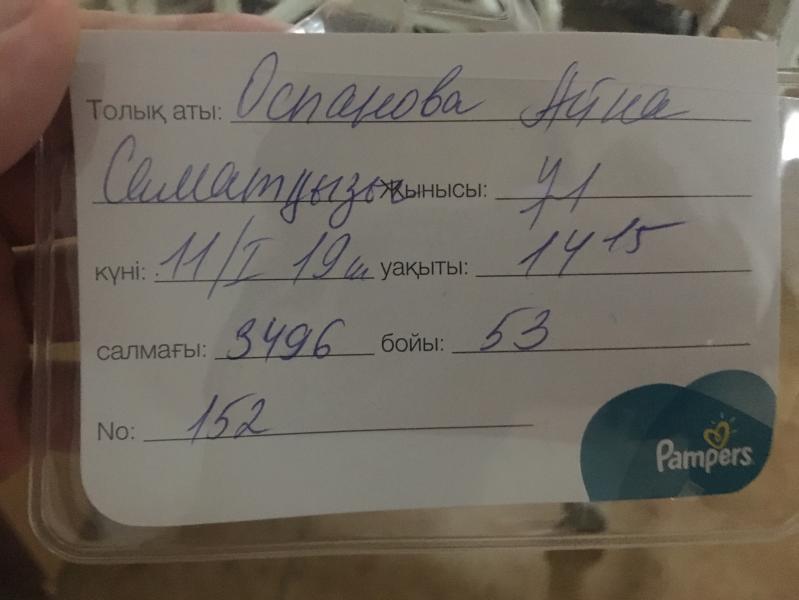 Толық аты: Оспанова Айна
Саматқызы Жынысы:
күні: 11/I 19ж уақыты: 14 15
салмағы: 3496 бойы: 53
No: 152
Pampers